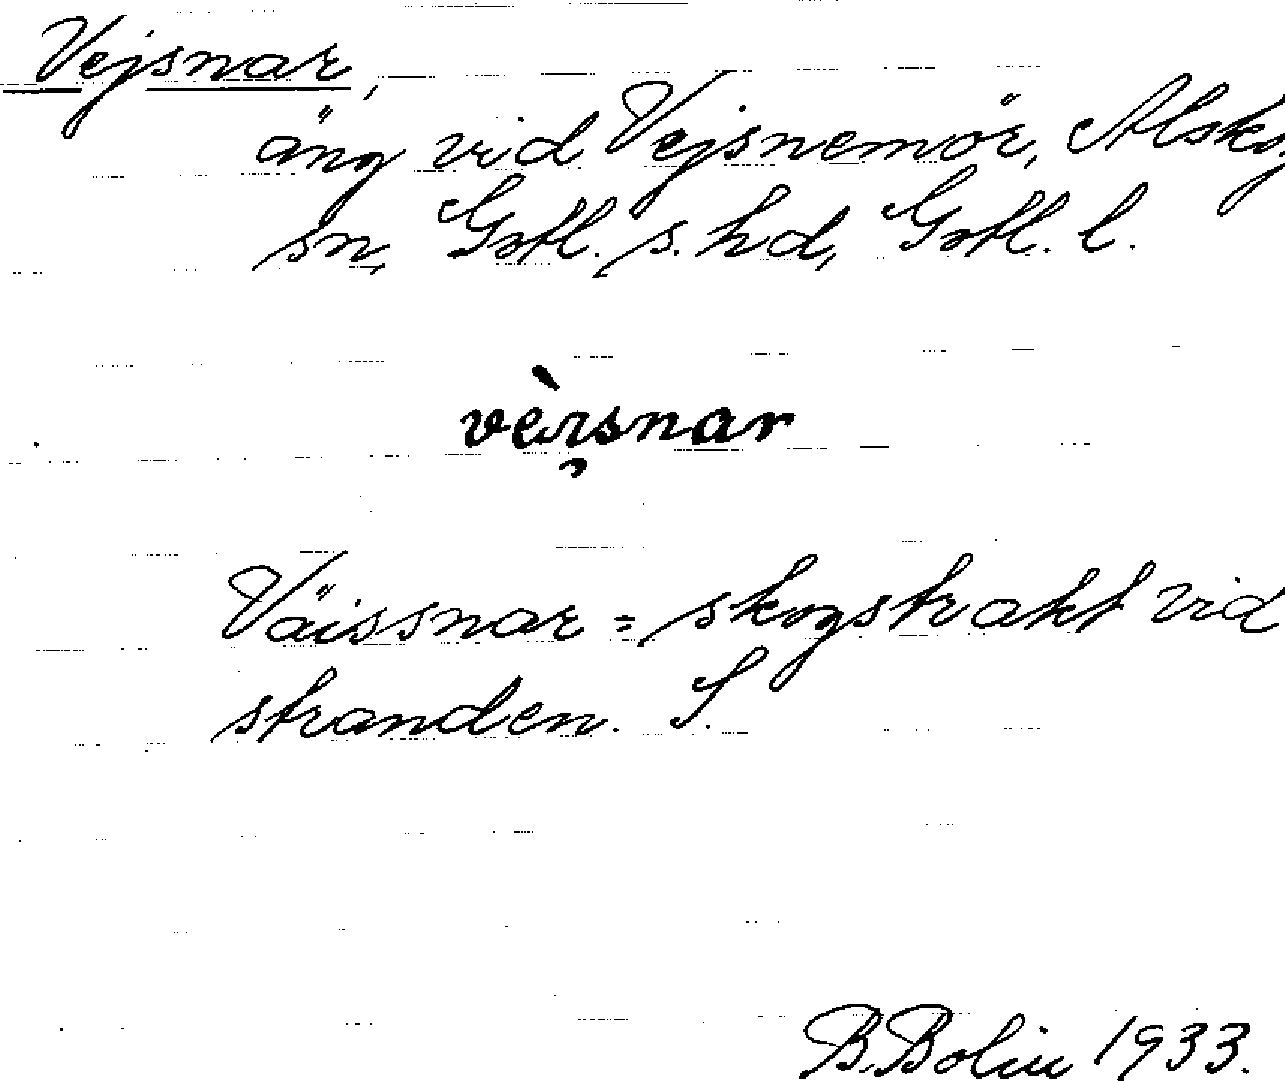 Vejsnar,
äng vid Vejsnemör, Alskog
sn, Gotl. s. hd, Gotl. l.
vèɪ̯snar
Väissnar = skogstrakt vid
stranden. S.
B. Bolin 1933.